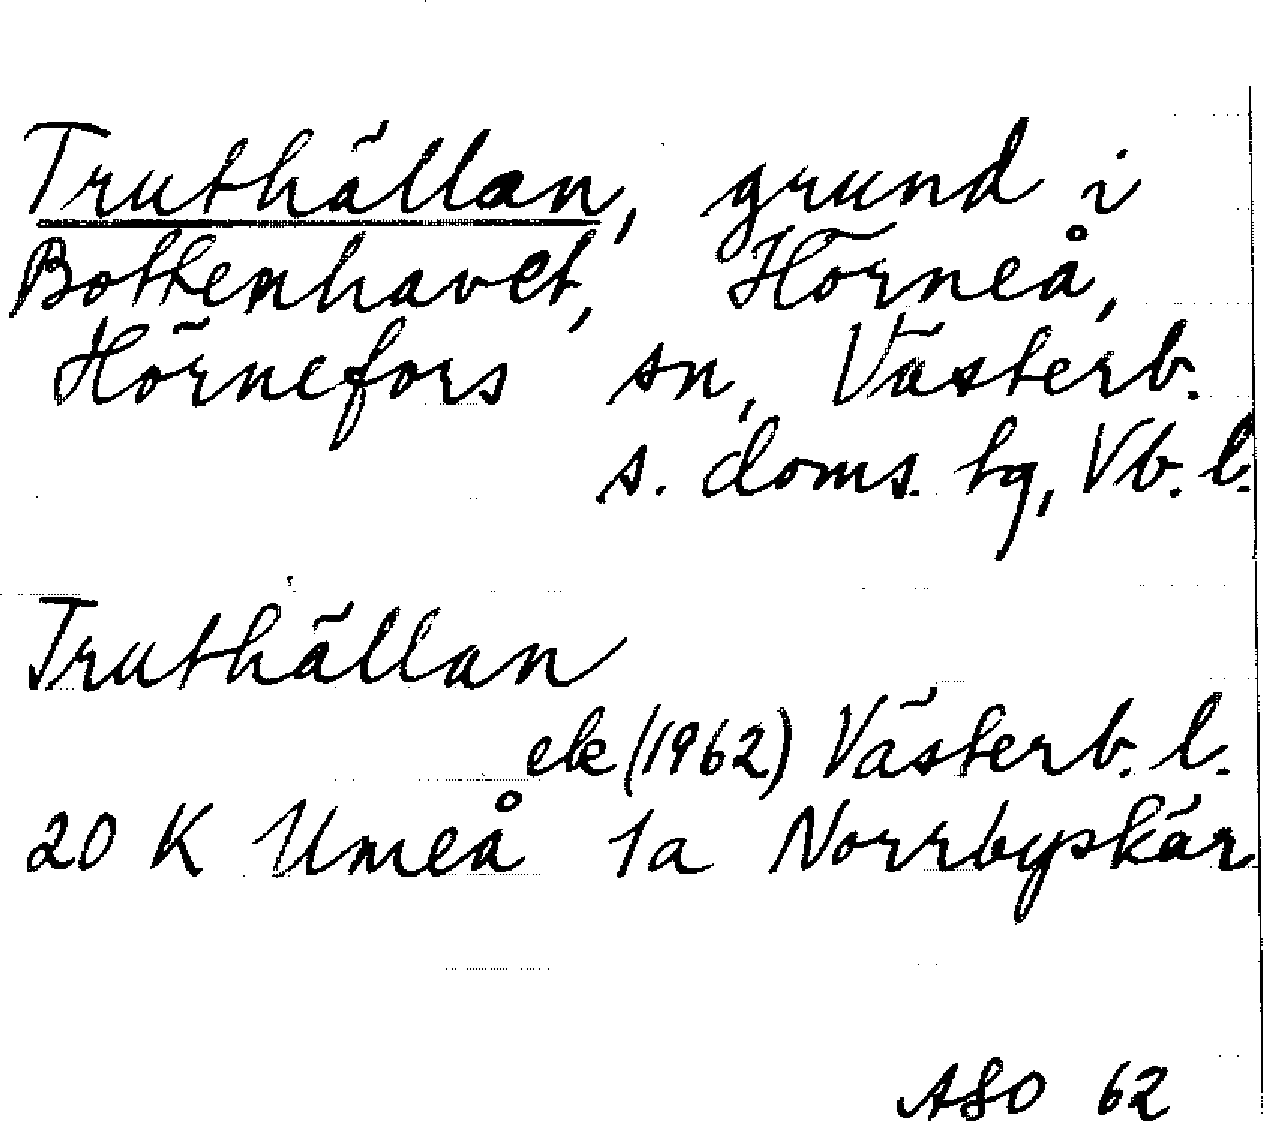 Truthällan, grund i
Bottenhavet, Hörneå,
Hörnefors sn, Västerb.
s. doms. tg, Vb. l.
Truthällan
ek (1962) Västerb. l.
20 K Umeå 1a Norrbyskär
ASO 62